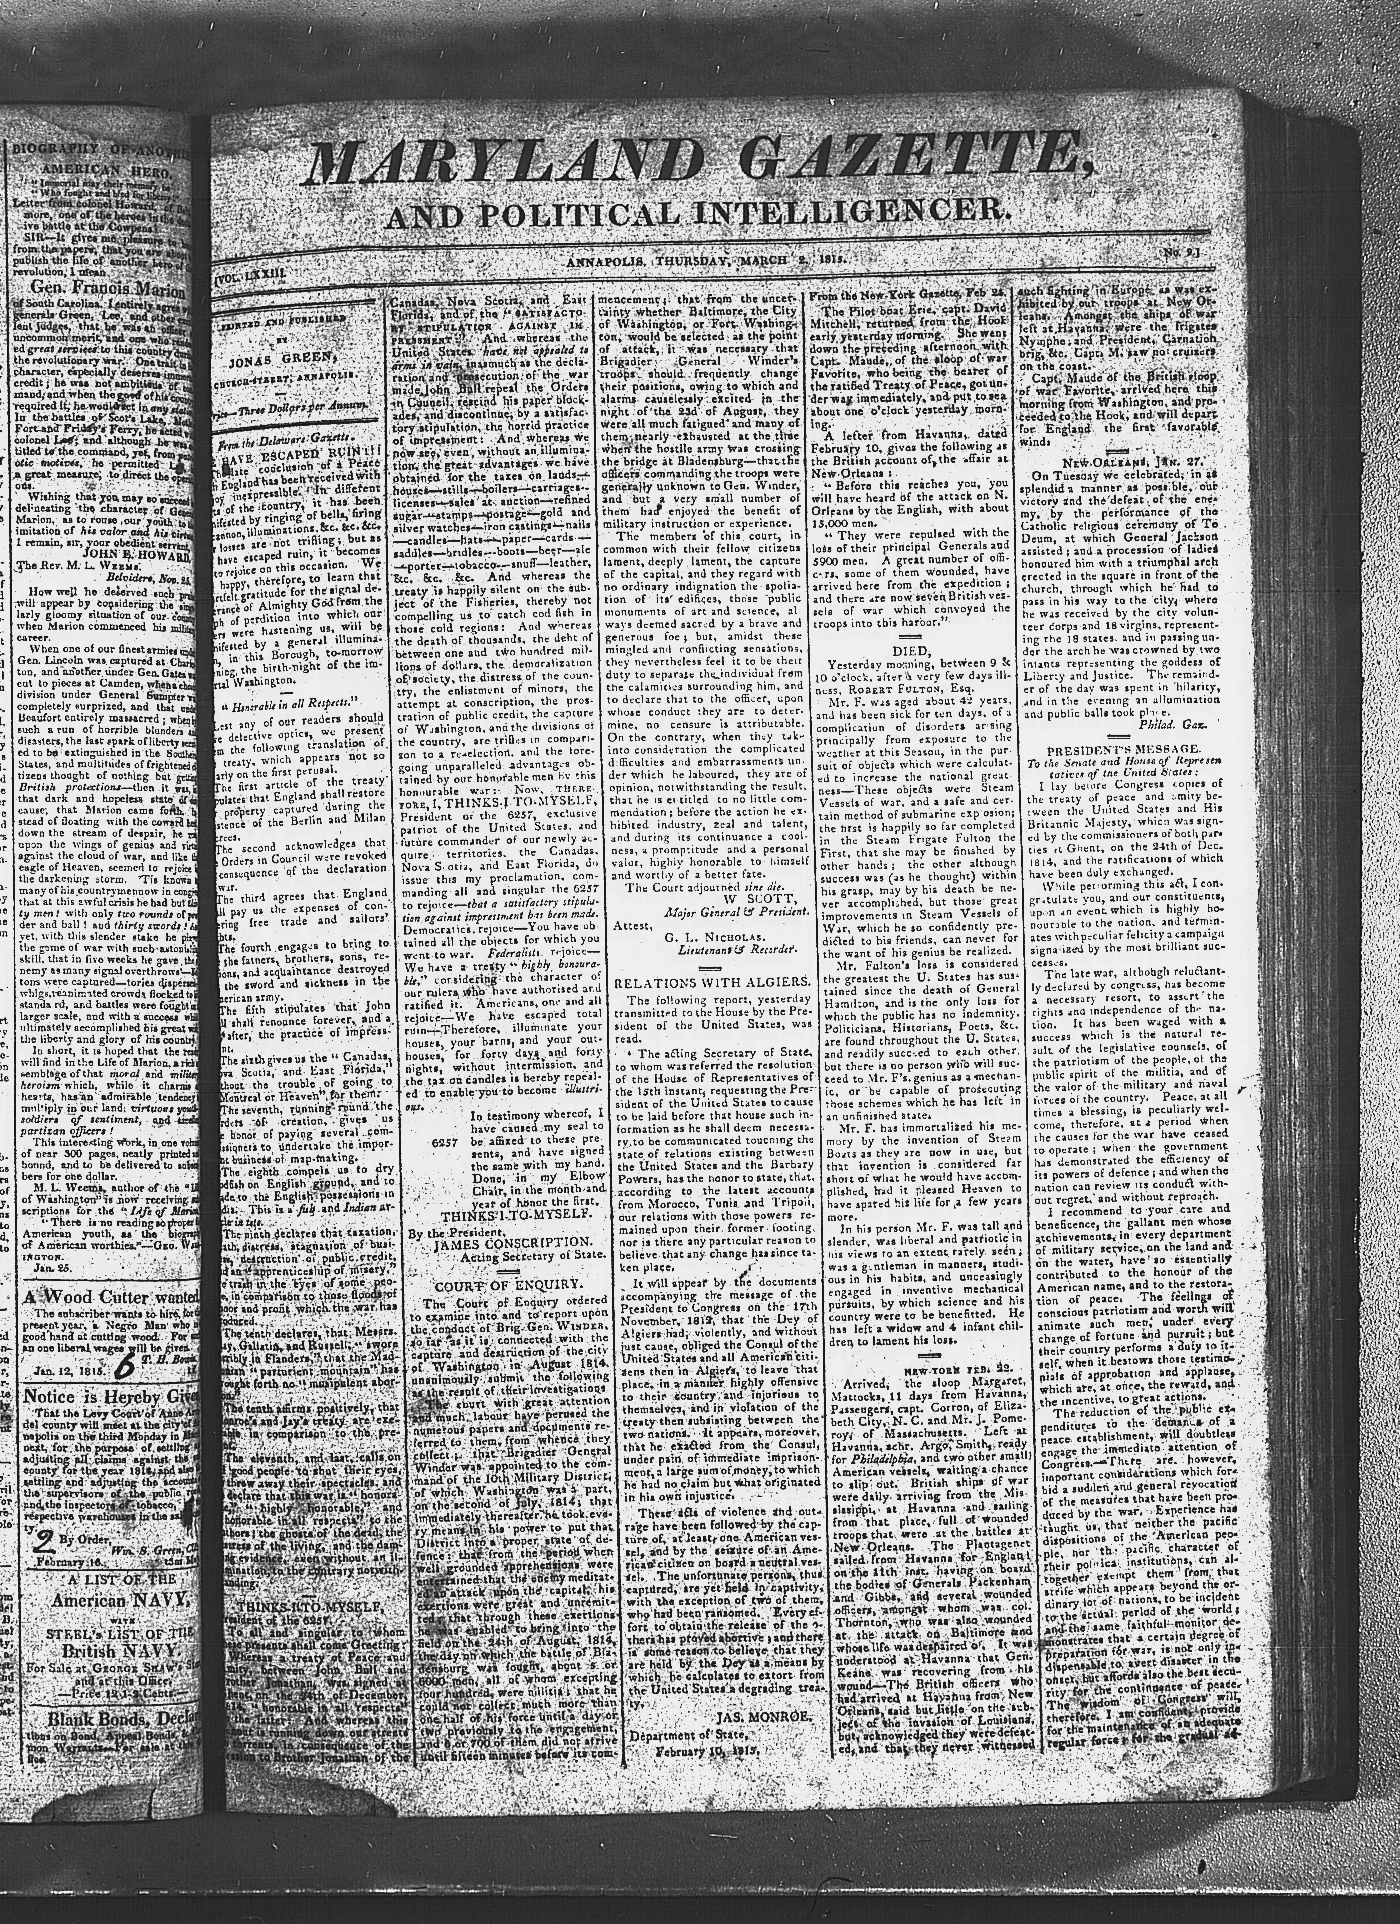 BIOGRAPHY OF ANOTHER
AMERICAN HERO.
"Immortal may their memory be
"Who fought and bled for liberty."
Letter from colonel Howard, of
more, one of the heroes in the
ive battle at the Cowpens!
SIR—It gives me pleasure to
from the papers, that you are about
publish the life of another hero of
revolution, I mean
Gen. Francis Marion
of South Carolina. I entirely agree
generals Green, Lee, and other
lent judges, that he was an officer
uncommon merit, and one who
ed great services to this country
the revolutionary war. One trait in
character, especially deserves
credit; he was not ambitious of
mand; and when the good of his country
required it, he would act in any
In the battles of Scot's Lake,
Fort and Friday's Ferry, he acted
colonel Lee; and although he was
titled to the command, yet, from
otic motives, he permitted
a great measure, to direct the
ons.
Wishing that you may so succeed
delineating the character of Gen.
Marion, as to rouse our youth to
imitation of his valor and his virtue
I remain, sir, your obedient servant,
JOHN E. HOWARD.
The Rev. M. L. WEEMS.
Belvidere, Nov. 25.
How well he deserved such
will appear by considering the
larly gloomy situation of our country
when Marion commenced his
career.
When one of our finest armies under
Gen. Lincoln was captured at
ton, and another under Gen. Gates
cut to pieces at Camden, when a
division under General Sumpter
completely surprized, and that under
Beaufort entirely massacred; when
such a run of horrible blunders
disasters, the last spark of liberty
ed to be extinguished in the Southern
States, and multitudes of frightened
tizens thought of nothing but getting
British protections—then it was,
that dark and hopeless state of
cause, that Marion came forth.
stead of floating with the coward
down the stream of despair, he
upon the wings of genius and
against the cloud of war, and like
eagle of Heaven, seemed to rejoice
the darkening storm. 'Tis known
many of his countrymen now in
that at this awful crisis he had but
ty men! with only two rounds of
der and ball! and thirty swords!
yet, with this slender stake he
the game of war with such
skill, that in five weeks he gave
nemy as many signal overthrows
tons were captured—tories dispersed
whigs reanimated crowds flocked to
standard, and battles were fought
larger scale, and with a success
ultimately accomplished his great
the liberty and glory of his country
In short, it is hoped that the
will find in the Life of Marion, a rich
semblage of that moral and military
heroism which, while it charms
hearts, has an admirable tendency
multiply in our land, virtuous
soldiers of sentiment, and
partizan officers!
This interesting work, in one
of near 300 pages, neatly printed
bound, and to be delivered to
bers for one dollar.
M. L. Weems, author of the
of Washington is now receiving
scriptions for the "Life of Marion
"There is no reading so proper
American youth, as the
of American worthies."—GEO.
INGTON.
Jan. 25.
A Wood Cutter wanted
The subscriber wants to hire, for
present year, a Negro Man who is
good hand at cutting wood. For
an one liberal wages will be given.
Jan. 12, 1815. 6
Notice is Hereby Given
That the Levy Court of Anne
del county will meet at the city of
napolis on the third Monday in
next, for the purpose of settling
adjusting all claims against the
county for the year 1814, and also
settling and adjusting the accounts
the supervisors of the public
and the inspectors of tobacco,
respective warehouses in the said
ty.
2 By Order,
Wm. S. Green, Clk
February 16.
A LIST OF THE
American NAVY,
WITH
STEEL'S LIST OF THE
British NAVY
For Sale at GEORGE SHAW'S
and at this Office.
—Price 12 1-2 Cents—
Blank Bonds,
tions on Bond, Appeal Bonds,
mon Warrants—For sale at
fice.
MARYLAND GAZETTE,
AND POLITICAL INTELLIGENCER.
[VOL. LXXIII. ANNAPOLIS, THURSDAY, MARCH 2, 1815. No. 9.]
PRINTED AND PUBLISHED
BY
JONAS GREEN,
CHURCH-STREET, ANNAPOLIS.
Price—Three Dollars per Annum.
From the Delaware Gazette.
HAVE ESCAPED RUIN!!!
late conclusion of a Peace
England has been received with
joy inexpressible. In different
of the country, it has been
nifested by ringing of bells, firing
cannon, illuminations, &c. &c. &c.
losses are not trifling; but as
have escaped ruin, it becomes
to rejoice on this occasion. We
happy, therefore, to learn that
heartfelt gratitude for the signal
of Almighty God from the
of perdition into which our
were hastening us, will be
nifested by a general illumina-
in this Borough, to-morrow
evening, the birth-night of the im-
mortal Washington.
"Honorable in all Respects."
Lest any of our readers should
be defective optics, we present
the following translation of
treaty, which appears not so
clearly on the first perusal.
The first article of the treaty
stipulates that England shall restore
property captured during the
existence of the Berlin and Milan
decrees.
The second acknowledges that
Orders in Council were revoked
consequence of the declaration
war.
The third agrees that England
shall pay us the expenses of con-
free trade and sailors'
rights.
The fourth engages to bring to
the fathers, brothers, sons, re-
lations, and acquaintance destroyed
the sword and sickness in the
American army.
The fifth stipulates that John
shall renounce forever, and a
after, the practice of impress-
ment.
The sixth gives us the "Canadas,
Nova Scotia, and East Florida,"
without the trouble of going to
Montreal or Heaven" for them.
The seventh, running round the
of creation, gives us
honor of paying several com-
missioners to undertake the impor-
tant business of map-making.
The eighth compels us to dry
codfish on English ground, and to
trade to the English possessions in
India. This is a full and Indian
The ninth declares that taxation,
death, distress, stagnation of busi-
ness, destruction of public credit,
and an "apprenticeship of misery,"
trash in the eyes of some peo-
ple, in comparison to those floods of
honor and profit which the war has
produced.
The tenth declares, that Messrs.
Gallatin, and Russell, "swore
terribly in Flanders," that the Mad-
"parturient mountain" has
brought forth no "munipalent abor-
The tenth affirms, positively, that
Monroe's and Jay's treaty are
in comparison to the pre-
sent.
The eleventh, and last, calls on
good people to shut their eyes,
throw away their spectacles, and
declare that this war is "honor-
able," "highly honorable,"
honorable in all respects" to the
authors; the ghosts of the dead; the
of the living, and the
evidence, even without an il-
lumination, to the contrary notwith-
standing.
THINKS-I-TO-MYSELF,
President of the 6257.
To all and singular to whom
these presents shall come Greeting:
Whereas a treaty of Peace and
amity, between John Bull and
brother Jonathan, was signed at
Ghent, on the 24th of December,
"honorable in all respects"
to the latter: And whereas this
is running down our streets
torrents, in consequence of the
cession to Brother Jonathan of the
Canadas, Nova Scotia, and East
Florida, and of the "SATISFACTO-
RY STIPULATION AGAINST IM-
PRESSMENT:" And whereas the
United States have not appealed to
arms in vain, inasmuch as the decla-
ration and prosecution of the war
made John Bull repeal the Orders
in Council, rescind his paper block-
ades, and discontinue, by a satisfac-
tory stipulation, the horrid practice
of impressment: And whereas we
now see, even without an illumina-
tion, the great advantages we have
obtained for the taxes on lands—
houses—stills—boilers—carriages—
licenses—sales at auction—refined
sugar—stamps—postage—gold and
silver watches—iron castings—nails
—candles—hats—paper—cards—
saddles—bridles—boots—beer—ale
—porter—tobacco—snuff—leather,
&c. &c. &c. And whereas the
treaty is happily silent on the sub-
ject of the Fisheries, thereby not
compelling us to catch cod fish in
those cold regions: And whereas
the death of thousands, the debt of
between one and two hundred mil-
lions of dollars, the demoralization
of society, the distress of the coun-
try, the enlistment of minors, the
attempt at conscription, the pros-
tration of public credit, the capture
of Washington, and the divisions of
the country, are trifles in compari-
son to a reelection, and the fore-
going unparalleled advantages ob-
tained by our honorable men by this
honourable war: Now, THERE-
FORE, I, THINKS-I TO-MYSELF,
President of the 6257, exclusive
patriot of the United States, and
future commander of our newly ac-
quired territories, the Canadas,
Nova Scotia, and East Florida, do
issue this my proclamation, com-
manding all and singular the 6257
to rejoice—that a satisfactory stipula-
tion against impressment has been made.
Democratics, rejoice—You have ob-
tained all the objects for which you
went to war. Federalists, rejoice—
We have a treaty "highly honoura-
ble," considering the character of
our rulers who have authorised and
ratified it. Americans, one and all
rejoice—We have escaped total
ruin—Therefore, illuminate your
houses, your barns, and your out-
houses, for forty days and forty
nights, without intermission, and
the tax on candles is hereby repeal-
ed to enable you to become illustri-
ous.
In testimony whereof, I
have caused my seal to
6257 be affixed to these pre-
sents, and have signed
the same with my hand.
Done, in my Elbow
Chair, in the month and
year of honor the first.
THINKS-I-TO-MYSELF.
By the President.
JAMES CONSCRIPTION.
Acting Secretary of State.
COURT OF ENQUIRY.
The Court of Enquiry ordered
to examine into and to report upon
the conduct of Brig. Gen. WINDER,
so far as it is connected with the
capture and destruction of the city
of Washington in August 1814,
unanimously submit the following
as the result of their investigations
The court with great attention
and much labour have perused the
numerous papers and documents re-
ferred to them, from whence they
collect, that Brigadier General
Winder was appointed to the com-
mand of the 10th Military District,
of which Washington was a part,
on the second of July, 1814; that
immediately thereafter he took eve-
ry means in his power to put that
District into a proper state of de-
fence; that from the period when
well grounded apprehensions were
entertained that the enemy meditat-
ed an attack upon the capital, his
exertions were great and unremit-
ted; that through these exertions
he was enabled to bring into the
field on the 24th of August, 1814,
the day on which the battle of Bla-
densburg was fought, about 5 or
6000 men, all of whom excepting
four hundred, were militia; that he
could not collect much more than
one half of his force until a day or
two previously to the engagement,
and 6 or 700 of them did not arrive
until fifteen minutes before its com-
mencement; that from the uncer-
tainty whether Baltimore, the City
of Washington, or Fort Washing-
ton, would be selected as the point
of attack, it was necessary that
Brigadier General Winder's
troops should frequently change
their positions, owing to which and
alarms causelessly excited in the
night of the 23d of August, they
were all much fatigued and many of
them nearly exhausted at the time
when the hostile army was crossing
the bridge at Bladensburg—that the
officers commanding the troops were
generally unknown to Gen. Winder,
and but a very small number of
them had enjoyed the benefit of
military instruction or experience.
The members of this court, in
common with their fellow citizens
lament, deeply lament, the capture
of the capital, and they regard with
no ordinary indignation the spolia-
tion of its edifices, those public
monuments of art and science, al
ways deemed sacred by a brave and
generous foe; but, amidst these
mingled and conflicting sensations,
they nevertheless feel it to be their
duty to separate the individual from
the calamities surrounding him, and
to declare that to the officer, upon
whose conduct they are to deter-
mine, no censure is attributable.
On the contrary, when they tak-
into consideration the complicated
difficulties and embarrassments un-
der which he laboured, they are of
opinion, notwithstanding the result,
that he is entitled to no little com-
mendation; before the action he ex-
hibited industry, zeal and talent,
and during its continuance a cool-
ness, a promptitude and a personal
valor, highly honorable to himself
and worthy of a better fate.
The Court adjourned sine die.
W SCOTT,
Major General & President.
Attest,
G. L. NICHOLAS.
Lieutenant & Recorder.
RELATIONS WITH ALGIERS.
The following report, yesterday
transmitted to the House by the Pre-
sident of the United States, was
read.
"The acting Secretary of State,
to whom was referred the resolution
of the House of Representatives of
the 15th instant, requesting the Pre-
sident of the United States to cause
to be laid before that house such in-
formation as he shall deem necessa-
ry to be communicated touching the
state of relations existing between
the United States and the Barbary
Powers, has the honor to state, that,
according to the latest accounts
from Morocco, Tunis and Tripoli,
our relations with those powers re-
mained upon their former footing,
nor is there any particular reason to
believe that any change has since ta-
ken place.
It will appear by the documents
accompanying the message of the
President to Congress on the 17th
November, 1812, that the Dey of
Algiers had, violently, and without
just cause, obliged the Consul of the
United States and all American citi-
zens then in Algiers, to leave that
place, in a manner highly offensive
to their country and injurious to
themselves, and in violation of the
treaty then subsisting between the
two nations. It appears, moreover,
that he exacted from the Consul,
under pain of immediate imprison-
ment, a large sum of money, to which
he had no claim but what originated
in his own injustice.
These acts of violence and out-
rage have been followed by the cap-
ture of, at least, one American ves-
sel, and by the seizure of an Ame-
rican citizen on board a neutral ves-
sel. The unfortunate persons, thus
captured, are yet held in captivity,
with the exception of two of them,
who had been ransomed. Every ef-
fort to obtain the release of the o-
thers has proved abortive; and there
is some reason to believe that they
are held by the Dey as a means by
which he calculates to extort from
the United States a degrading trea-
ty.
JAS. MONROE.
Department of State,
February 10, 1815.
From the New-York Gazette, Feb 22.
The Pilot boat Erie, capt. David
Mitchell, returned from the Hook
early yesterday morning. She went
down the preceding afternoon with
Capt. Maude, of the sloop of war
Favorite, who being the bearer of
the ratified Treaty of Peace, got un-
der way immediately, and put to sea
about one o'clock yesterday morn-
ing.
A letter from Havanna, dated
February 10, gives the following as
the British account of the affair at
New-Orleans:
"Before this reaches you, you
will have heard of the attack on N.
Orleans by the English, with about
15,000 men.
"They were repulsed with the
loss of their principal Generals and
5900 men. A great number of offi-
cers, some of them wounded, have
arrived here from the expedition;
and there are now seven British ves-
sels of war which convoyed the
troops into this harbor."
DIED,
Yesterday morning, between 9 &
10 o'clock, after a very few days ill-
ness, ROBERT FULTON, Esq.
Mr. F. was aged about 42 years,
and has been sick for ten days, of a
complication of disorders arising
principally from exposure to the
weather at this Season, in the pur-
suit of objects which were calculat-
ed to increase the national great-
ness—These objects were Steam
Vessels of war, and a safe and cer-
tain method of submarine explosion;
the first is happily so far completed
in the Steam Frigate Fulton the
First, that she may be finished by
other hands; the other although
success was (as he thought) within
his grasp, may by his death be ne-
ver accomplished, but those great
improvements in Steam Vessels of
War, which he so confidently pre-
dicted to his friends, can never for
the want of his genius be realized.
Mr. Fulton's loss is considered
the greatest the U. States has sus-
tained since the death of General
Hamilton, and is the only loss for
which the public has no indemnity.
Politicians, Historians, Poets, &c.
are found throughout the U. States,
and readily succeed to each other,
but there is no person who will suc-
ceed to Mr. F's. genius as a mechan-
ic, or be capable of prosecuting
those schemes which he has left in
an unfinished state.
Mr. F. has immortalized his me-
mory by the invention of Steam
Boats as they are now in use, but
that invention is considered far
short of what he would have accom-
plished, had it pleased Heaven to
have spared his life for a few years
more.
In his person Mr. F. was tall and
slender, was liberal and patriotic in
his views to an extent rarely seen;
was a gentleman in manners, studi-
ous in his habits, and unceasingly
engaged in inventive mechanical
pursuits, by which science and his
country were to be benefitted. He
has left a widow and 4 infant chil-
dren to lament his loss.
NEW-YORK FEB. 22.
Arrived, the sloop Margaret,
Mattocks, 11 days from Havanna,
Passengers, capt. Corron, of Eliza-
beth City, N. C. and Mr. J. Pome-
roy, of Massachusetts. Left at
Havanna, schr. Argo, Smith, ready
for Philadelphia, and two other small
American vessels, waiting a chance
to slip out. British ships of war
were daily arriving from the Mis-
sissippi, at Havanna and sailing
from that place, full of wounded
troops that were at the battles at
New Orleans. The Plantagenet
sailed from Havanna for England
on the 11th inst. having on board
the bodies of Generals Packenham
and Gibbs, and several wounded
officers, amongst whom was col.
Thornton, who was also wounded
at the attack on Baltimore and
whose life was despaired of. It was
understood at Havanna that Gen.
Keane was recovering from his
wound—The British officers who
had arrived at Havanna from New
Orleans, said but little on the sub-
ject of the invasion of Louisiana,
but acknowledged they were defeat-
ed, and that they never witnessed
such fighting in Europe, as was ex-
hibited by our troops at New Or-
leans. Amongst the ships of war
left at Havanna, were the frigates
Nymphe, and President, Carnation
brig, &c. Capt. M. saw no cruisers
on the coast.
Capt. Maude of the British sloop
of war Favorite, arrived here this
morning from Washington, and pro-
ceeded to the Hook, and will depart
for England the first favorable
wind:
NEW-ORLEANS, JAN. 27.
On Tuesday we celebrated, in as
splendid a manner as possible, our
victory and the defeat of the ene-
my, by the performance of the
Catholic religious ceremony of Te
Deum, at which General Jackson
assisted; and a procession of ladies
honoured him with a triumphal arch
erected in the square in front of the
church, through which he had to
pass in his way to the city, where
he was received by the city volun-
teer corps and 18 virgins, represent-
ing the 18 states, and in passing un-
der the arch he was crowned by two
infants representing the goddess of
Liberty and Justice. The remaind-
er of the day was spent in hilarity,
and in the evening an illumination
and public balls took place.
Philad. Gaz.
PRESIDENT'S MESSAGE.
To the Senate and House of Represen
tatives of the United States:
I lay before Congress copies of
the treaty of peace and amity be-
tween the United States and His
Britannic Majesty, which was sign-
ed by the commissioners of both par-
ties at Ghent, on the 24th of Dec.
1814, and the ratifications of which
have been duly exchanged.
While performing this act, I con-
gratulate you, and our constituents,
upon an event which is highly ho-
nourable to the nation, and termin-
ates with peculiar felicity a campaign
signalized by the most brilliant suc-
cesses.
The late war, although reluctant-
ly declared by congress, has become
a necessary resort, to assert the
rights and independence of the na-
tion. It has been waged with a
success which is the natural re-
sult of the legislative counsels, of
the patriotism of the people, of the
public spirit of the militia, and of
the valor of the military and naval
forces of the country. Peace, at all
times a blessing, is peculiarly wel-
come, therefore, at a period when
the causes for the war have ceased
to operate; when the government
has demonstrated the efficiency of
its powers of defence; and when the
nation can review its conduct with-
out regret, and without reproach.
I recommend to your care and
beneficence, the gallant men whose
atchievements, in every department
of military service, on the land and
on the water, have so essentially
contributed to the honour of the
American name, and to the restora-
tion of peace. The feelings of
conscious patriotism and worth will
animate such men, under every
change of fortune and pursuit; but
their country performs a duty to it-
self, when it bestows those testimo-
nials of approbation and applause,
which are, at once, the reward, and
the incentive, to great actions.
The reduction of the public ex-
penditures to the demands of a
peace establishment, will doubtless
engage the immediate attention of
Congress.—There are, however,
important considerations which for-
bid a sudden and general revocation
of the measures that have been pro-
duced by the war. Experience has
taught us, that neither the pacific
dispositions of the American peo-
ple, nor the pacific character of
their political institutions, can al-
together exempt them from that
strife which appears beyond the or-
dinary lot of nations, to be incident
to the actual period of the world;
and the same faithful monitor de-
monstrates that a certain degree of
preparation for war, is not only in-
dispensable to avert disaster in the
onset, but affords also the best secu-
rity for the continuence of peace.
The wisdom of Congress will,
therefore, I am confident, provide
for the maintenance of an adequate
regular force; for the gradual ad-